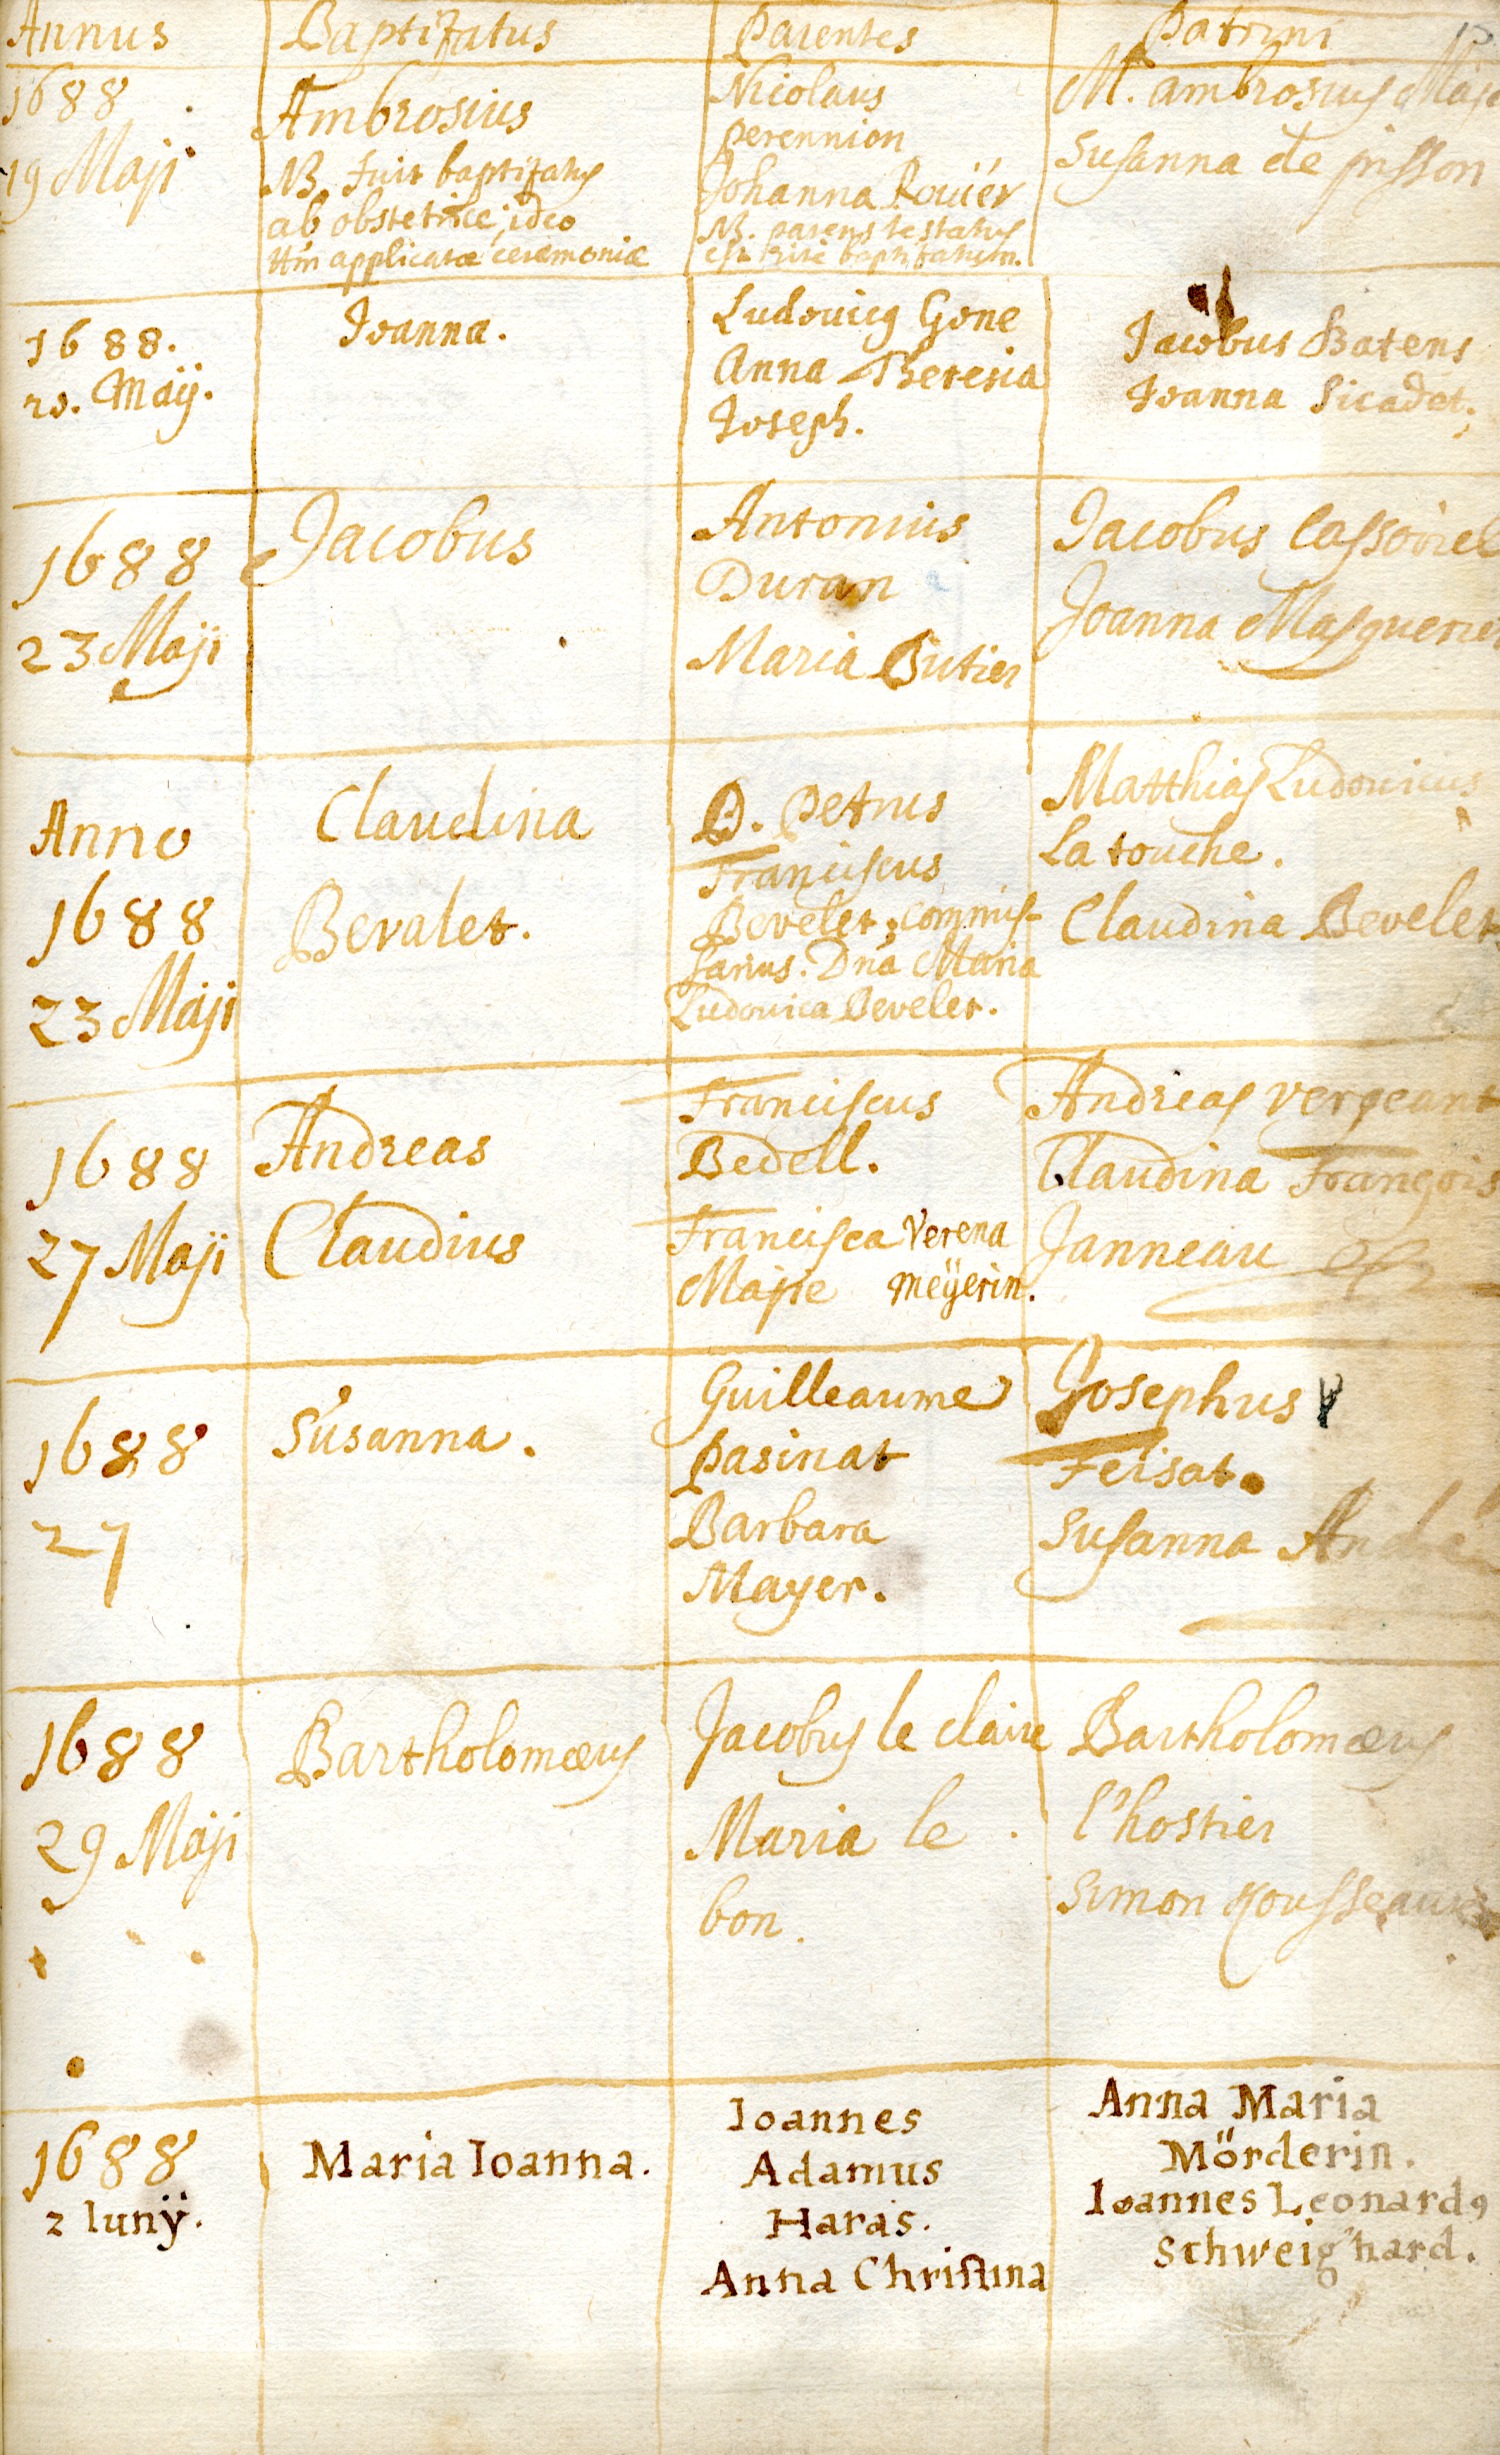 Annus Baptizatus Parentes Patrini
1688
19 Maji
Ambrosius
NB. Fuit baptizatus
ab obstetrice, ideo
ttm applicatæ ceremoniæ
Nicolaus
perennion
Johanna Rouiér
NB. parens testatus
est rite baptizatum.
M. ambrosius
Susanna de
1688.
20. Maÿ.
Joanna.
Ludovicg Gone
Anna Theresia
Joseph.
Jacobus Batens
Joanna Sicadet.
1688
23 Maji
Jacobus
Antonius
Duran
Maria Butier
Jacobus
Joanna
Anno
1688
23 Maji
Claudina
Bevalet.
D. Petrus
Franciscus
Bevelet, commis-
sarius. Dna Maria
Ludovica Bevelet.
Matthias Ludovicus
La touche.
Claudina Bevelet
1688
27 Maji
Andreas
Claudius
Franciscus
Bedell.
Francisca Verena
Majre Meÿerin.
Andreas Vergeant
Claudina François
Janneau
1688
27
Susanna.
Guilleaume
Pasinat
Barbara
Mayer.
Josephus
Felsat.
Susanna André
1688
29 Maji
Bartholomæus
Jacobus le claire
Maria le
bon.
Bartholomæus
l'hostier
Simon rousseau
1688
2 Iunÿ.
Maria Ioanna.
Ioannes
Adamus
Haras.
Anna Christina
Anna Maria
Mörderin.
Ioannes Leonardg
Schweighard.